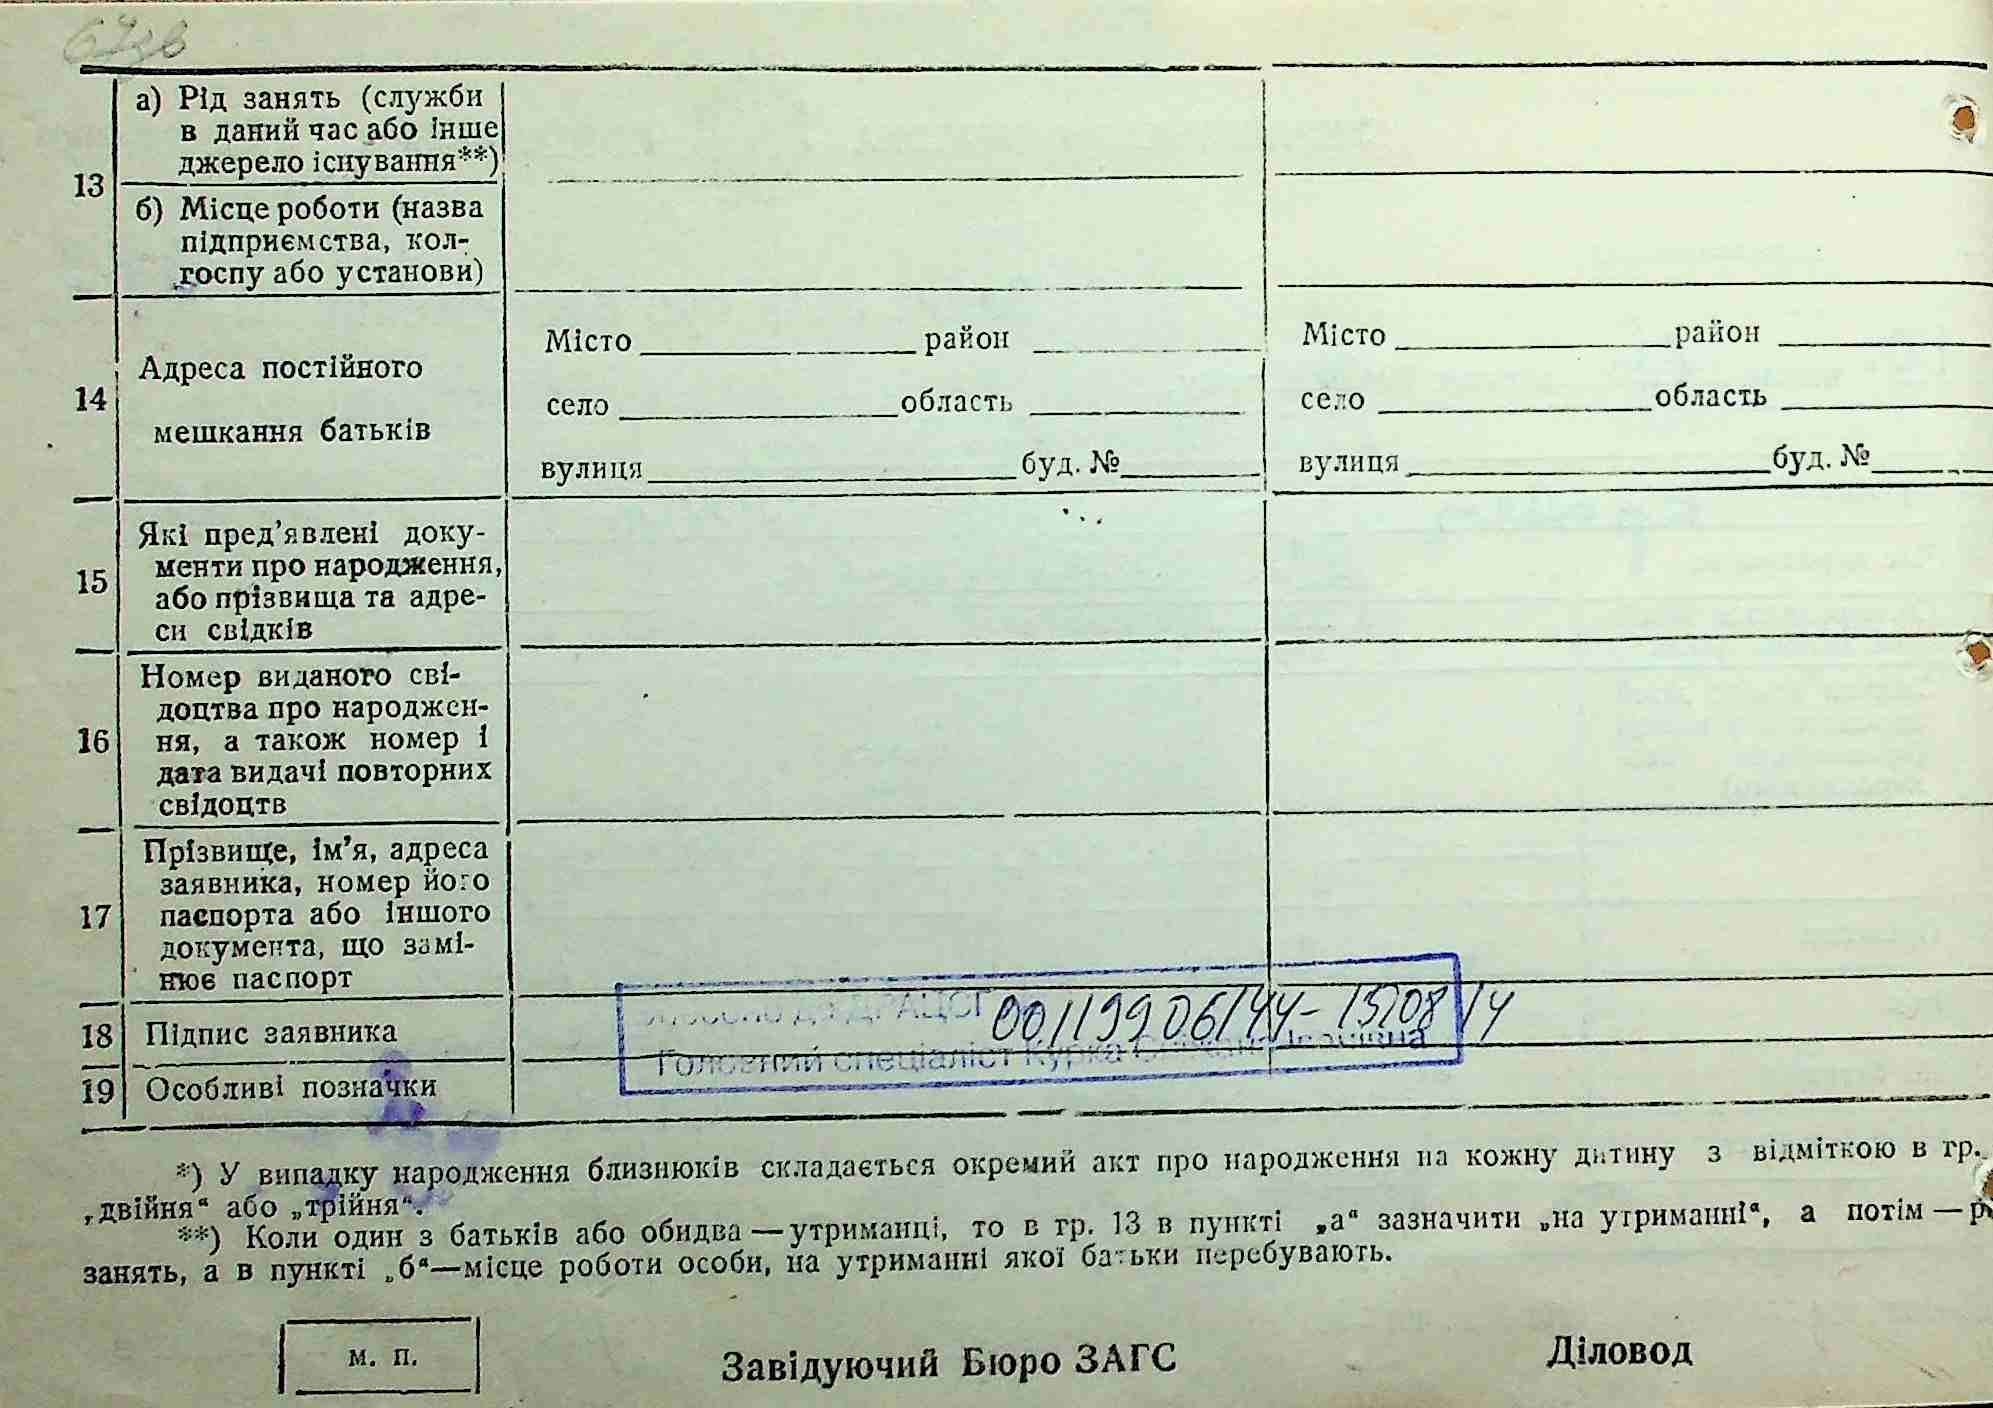 67зв
13
а) Рід занять (служби
в даний час або інше
джерело існування**)
б) Місце роботи (назва
підприємства, кол-
госпу або установи)
14
Адреса постійного
мешкання батьків
Місто район
село область
вулиця буд. №
Місто район
село область
вулиця буд. №
15
Які пред’явлені доку-
менти про народження,
або прізвища та адре-
си свідків
16
Номер виданого сві-
доцтва про народжен-
ня, а також номер і
дата видачі повторних
свідоцтв
17
Прізвище, ім’я, адреса
заявника, номер його
паспорта або іншого
документа, що замі-
нює паспорт
18 Підпис заявника
19 Особливі позначки
ДРАЦСГ 00119906144-15/08/14
Головний спеціаліст Курка
*) У випадку народження близнюків складається окремий акт про народження на кожну дитину з відміткою в гр.
„двійня“ або „трійня“.
**) Коли один з батьків або обидва — утриманці, то в гр. 13 в пункті „а“ зазначити „на утриманні“, а потім — р
занять, а в пункті „б“—місце роботи особи, на утриманні якої батьки перебувають.
м. п.
Завідуючий Бюро ЗАГС
Діловод